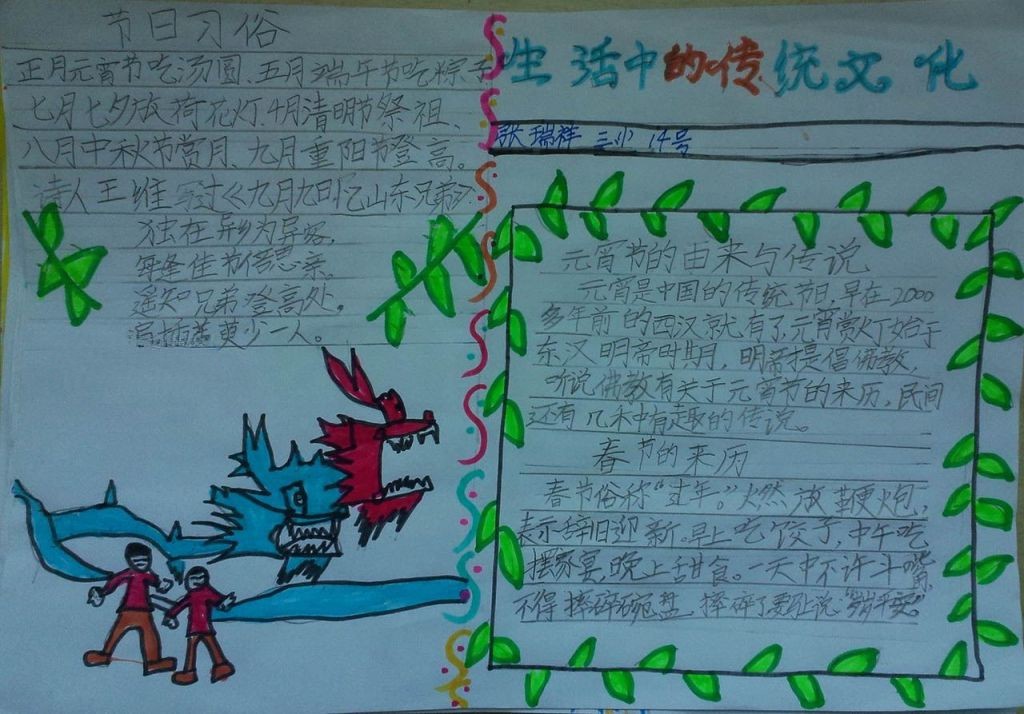 节日习俗
正月元宵节吃汤圆、五月端午节吃粽子
七月七夕放荷花灯、4月清明节祭祖、
八月中秋节赏月、九月重阳节登高。
诗人王维写过《九月九日忆山东兄弟》
独在异乡为异客,
每逢佳节倍思亲。
遥知兄弟登高处。
遍插茱萸少一人。
生活中的传统文化
张瑞祥 三小 14号
元宵节的由来与传说
元宵是中国的传统节日,早在2000
多年前的西汉就有了元宵赏灯始于
东汉明帝时期,明帝提倡佛教,
听说佛教有关于元宵节的来历,民间
还有几种有趣的传说。
春节的来历
春节俗称“过年”。燃放鞭炮,
表示辞旧迎新。早上吃饺子,中午吃
摆家宴,晚上甜食。一天中不许斗嘴
不得摔碎碗盘,摔碎了要说“岁岁平安”